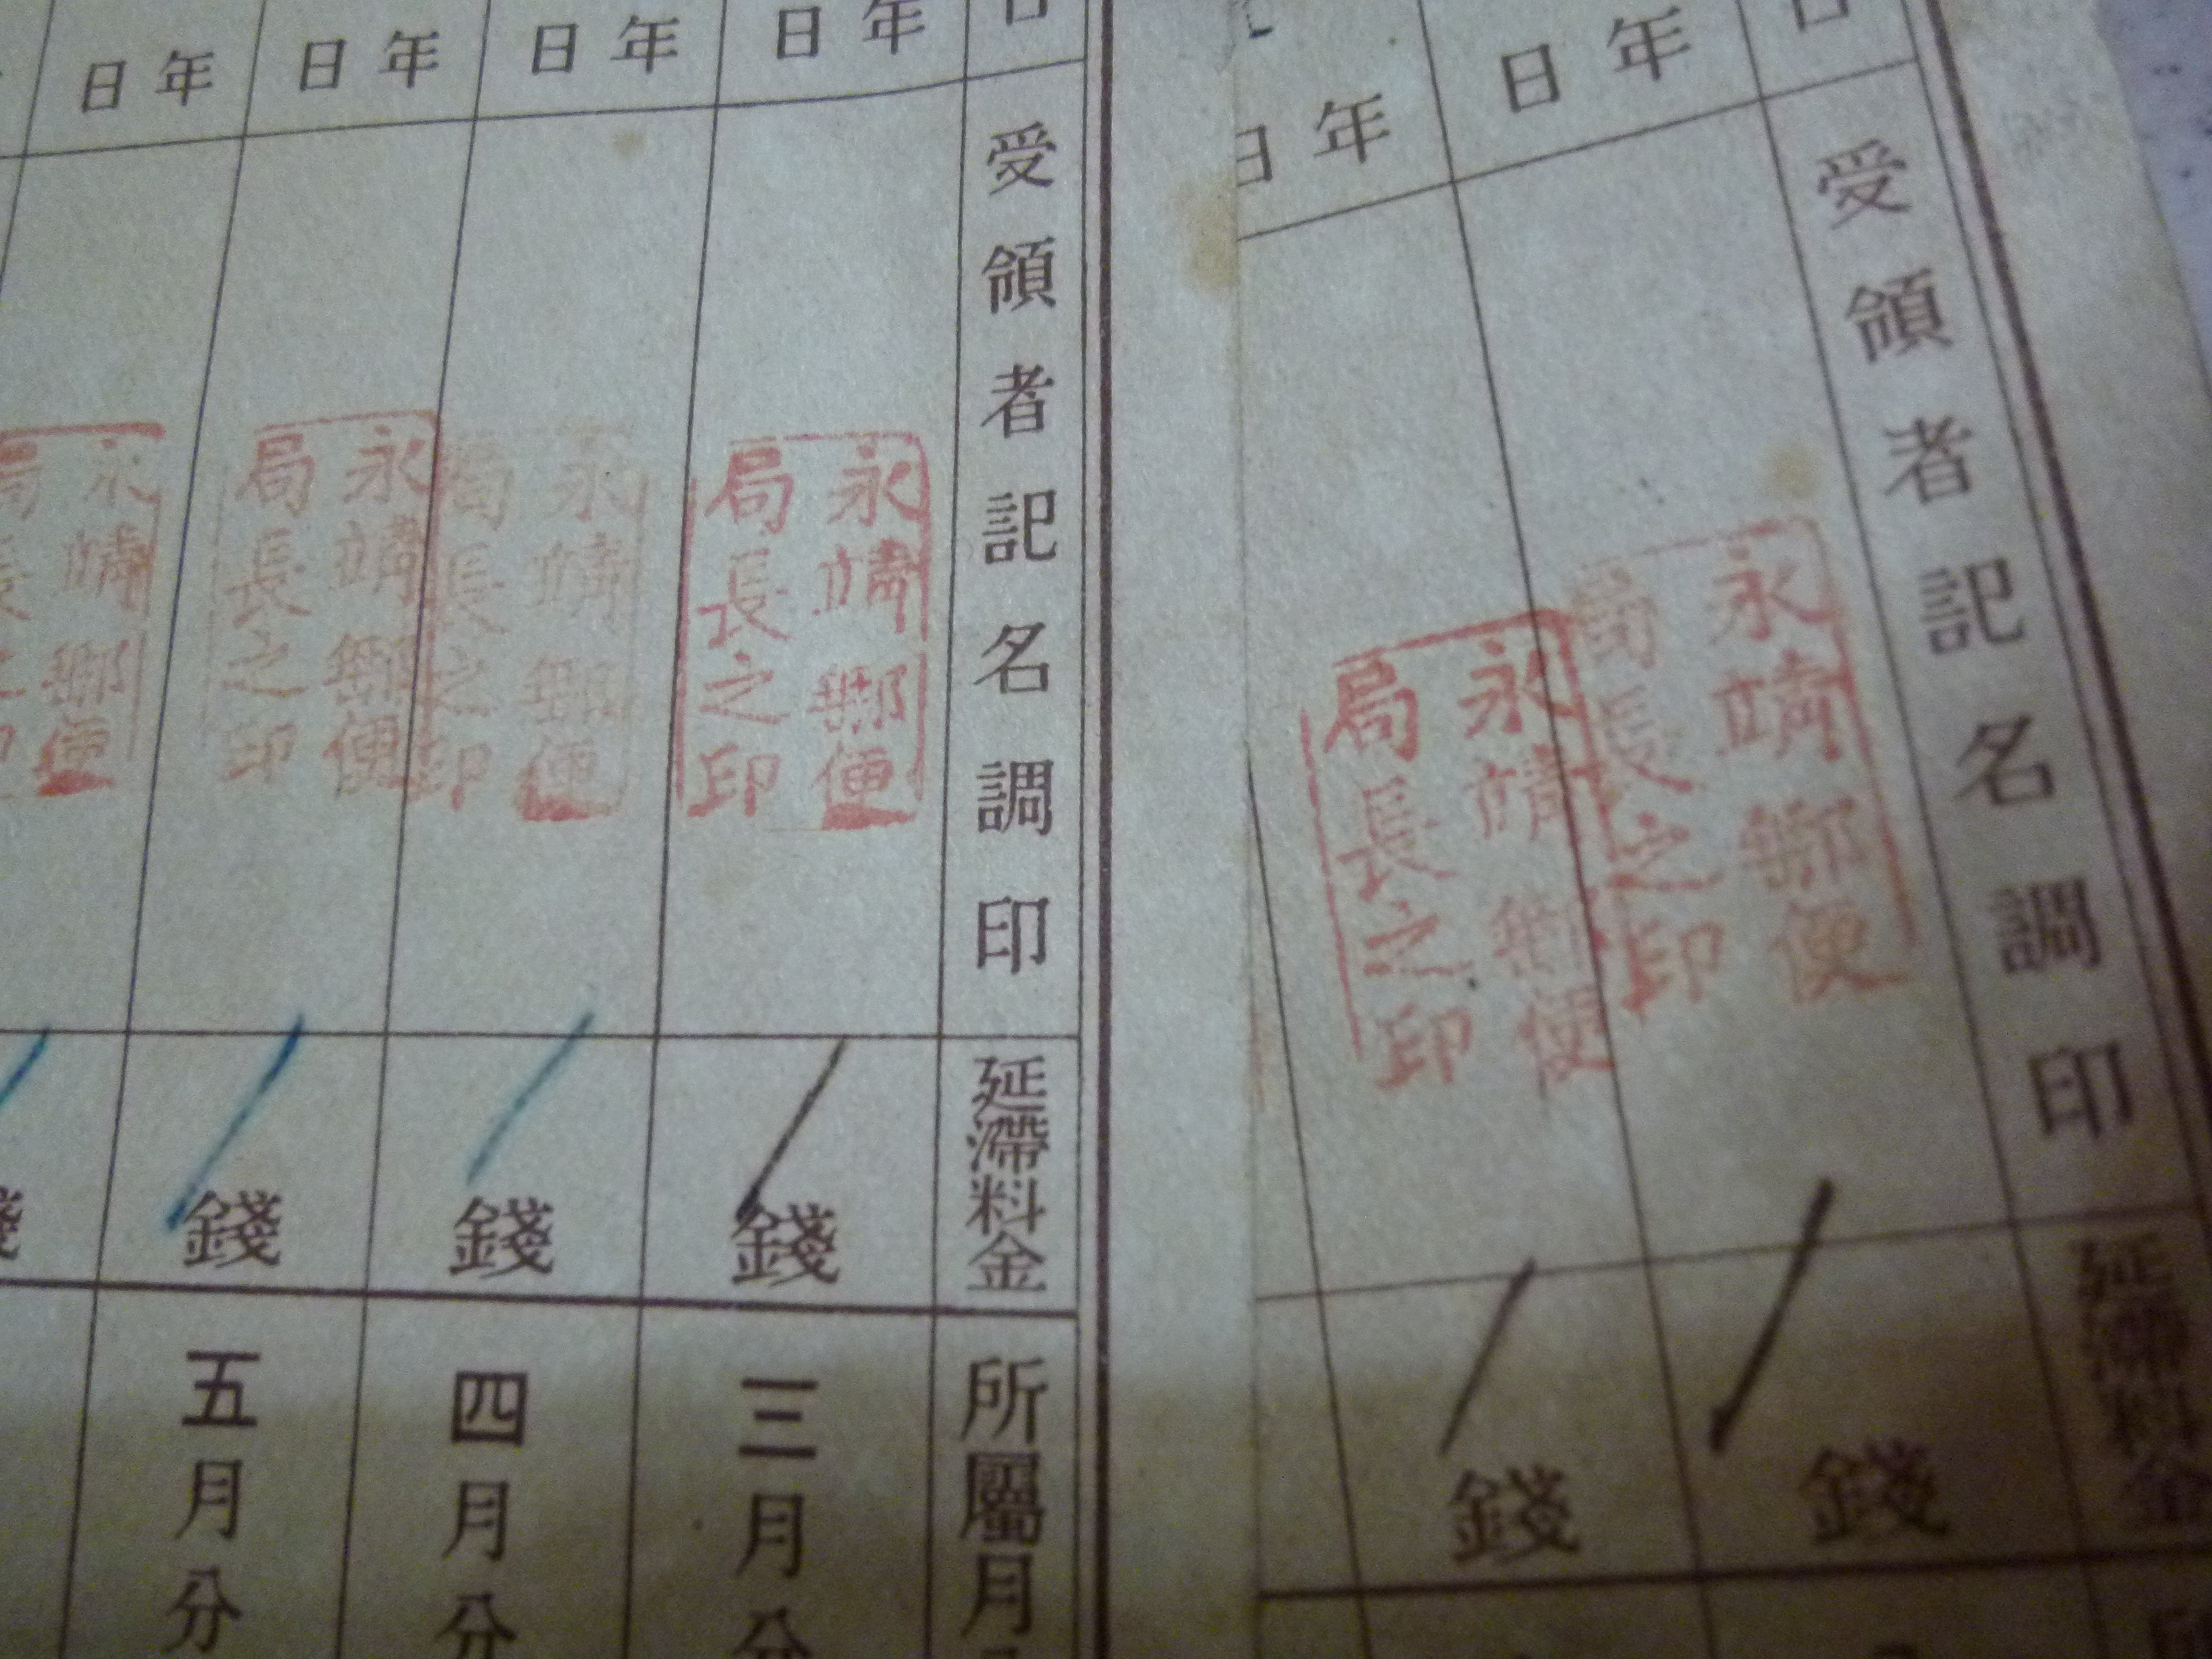 受領者記名調印
延滯料金
年
日
永靖郵便
局長之印
錢
年
永靖郵便
局長之印
錢
受領者記名調印
延滯料金
所屬月
年
日
永靖郵便
局長之印
錢
三月分
年
日
永靖郵便
局長之印
錢
四月分
年
日
永靖郵便
局長之印
錢
五月分
年
日
永靖郵便